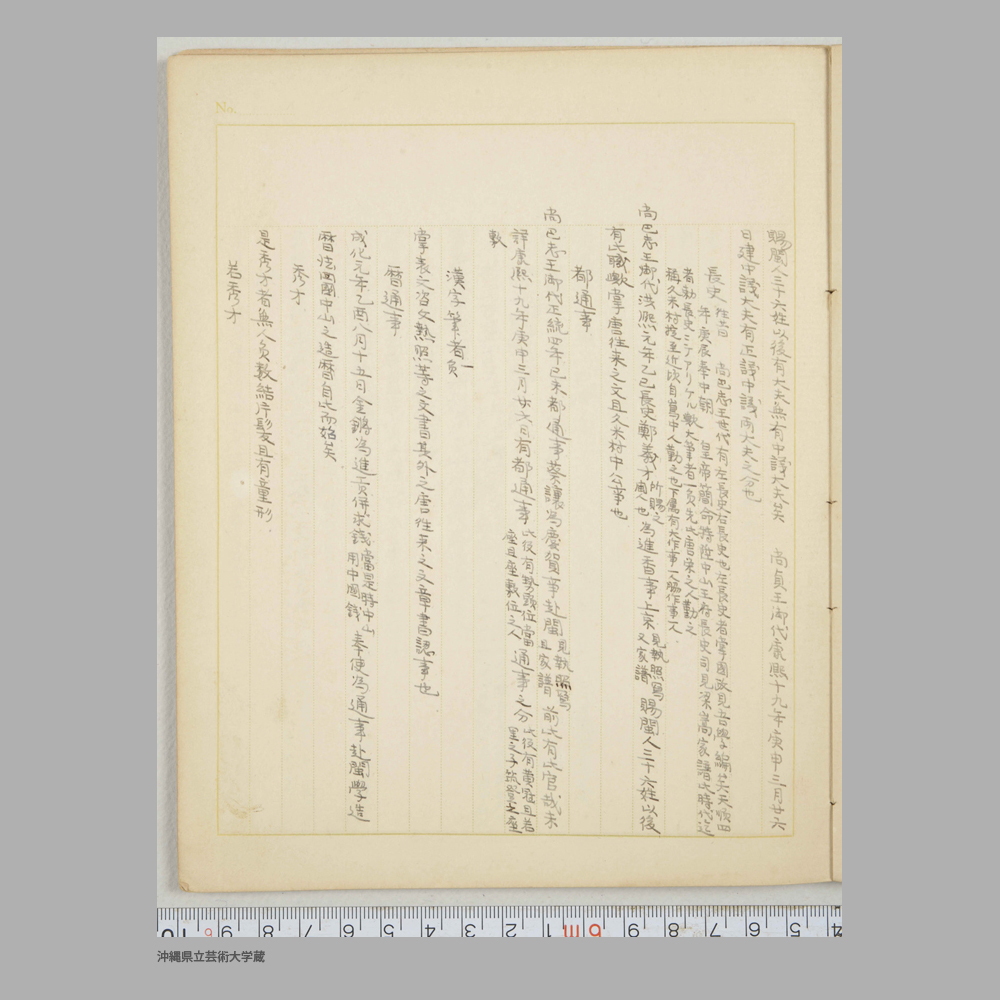 賜閩人三十六姓以後有大夫無有中議大夫矣 尚貞王御代康熙十九年庚申三月廿六
日建中議大夫有正議中議両大夫之分也
長史
往昔 尚巴志王世代有左長史右長史也左長史者掌國政見吾學編英天順四
年庚辰奉中朝 皇帝簡命特陞中山王府長史司見梁嵩家譜此時代迄
者勤長史ミテアリケル歟大筆者一負先此唐栄之人勤之
稱久米村掟至近比自嵩中人勤之也下属有大作事一人脇作事一人
尚巴志王御代洪熙元年乙巳長史鄭義才 所賜之閩人也 為進香事上京 見執照写又家譜 賜閩人三十六姓以後
有此職歟掌唐往来之文且久米村中公事也
都通事
尚巴志王御代正統四年己未都通事蔡讓為慶賀事赴閩 見執照写且家譜 前此有此官哉未
詳康熙十九年庚申三月廿六日有都通事 此後有勢頭位當座且座敷位之人 通事之分 此後有黄冠且若里之子筑登之座
敷
漢字筆者一負
掌表文咨文執照等之文書其外之唐往来之文章書認事也
暦通事
成化元年乙酉八月十五日金鏘為進貢併求錢 當是時中山用中国錢 奉使為通事赴閩學造
暦法両國中山之造暦自此而始矣
秀才
是秀才者無人負數結片髪且有童形.
若秀才
No.
10 9 8 7 6 5 4 3 2 1 m 9 8 7 6 5 4
沖縄県立芸術大学蔵